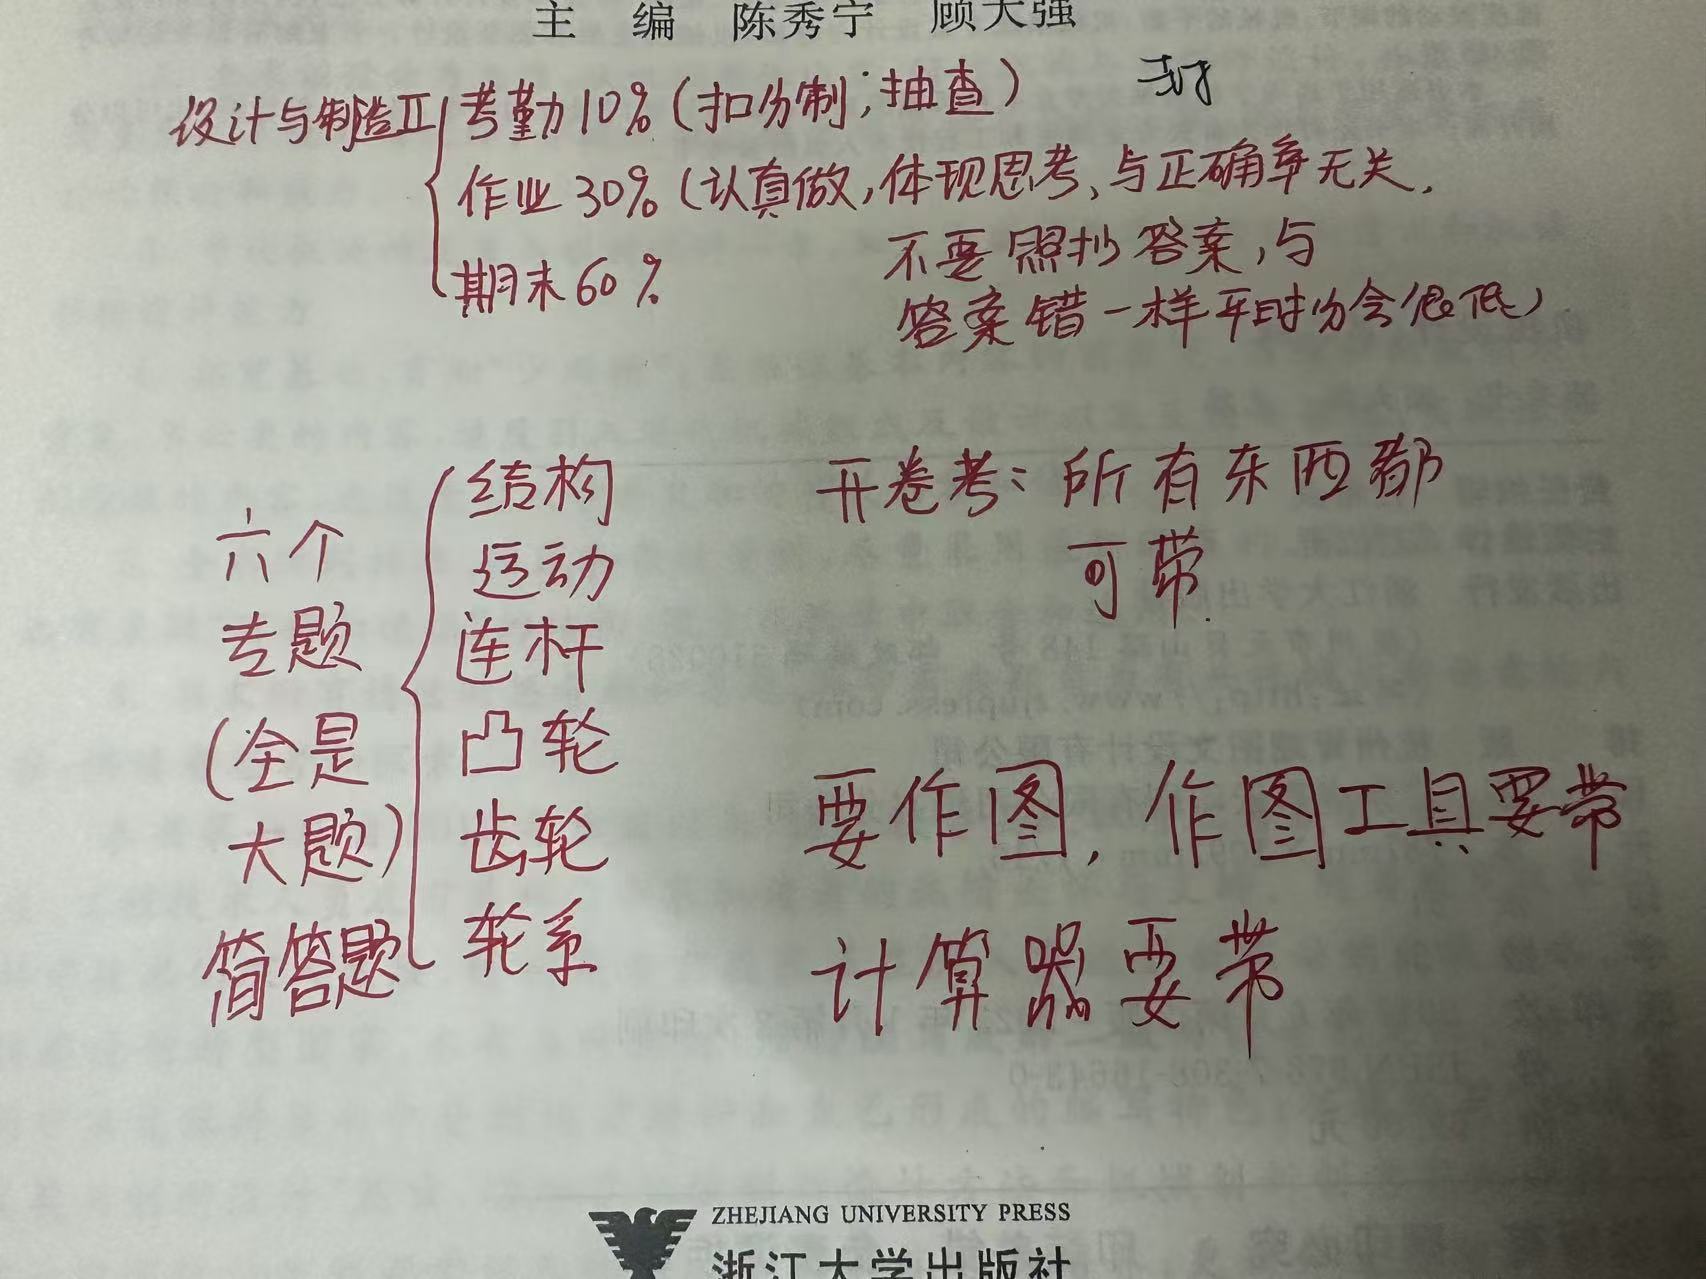 主 编 陈秀宁 顾大强
设计与制造Ⅱ 考勤10%(扣分制;抽查)
作业30%(认真做,体现思考、与正确率无关,
不要照抄答案,与
答案错一样平时分会很低)
期末60%
六个
专题
(全是
大题)
简答题
结构
运动
连杆
凸轮
齿轮
轮系
开卷考:所有东西都
可带
要作图,作图工具要带
计算器要带
ZHEJIANG UNIVERSITY PRESS
浙江大学出版社